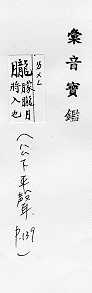 彙音寶鑑
ㄅㄨㄥ
朧 朦朧月
將入也
(公下平聲
P.139)